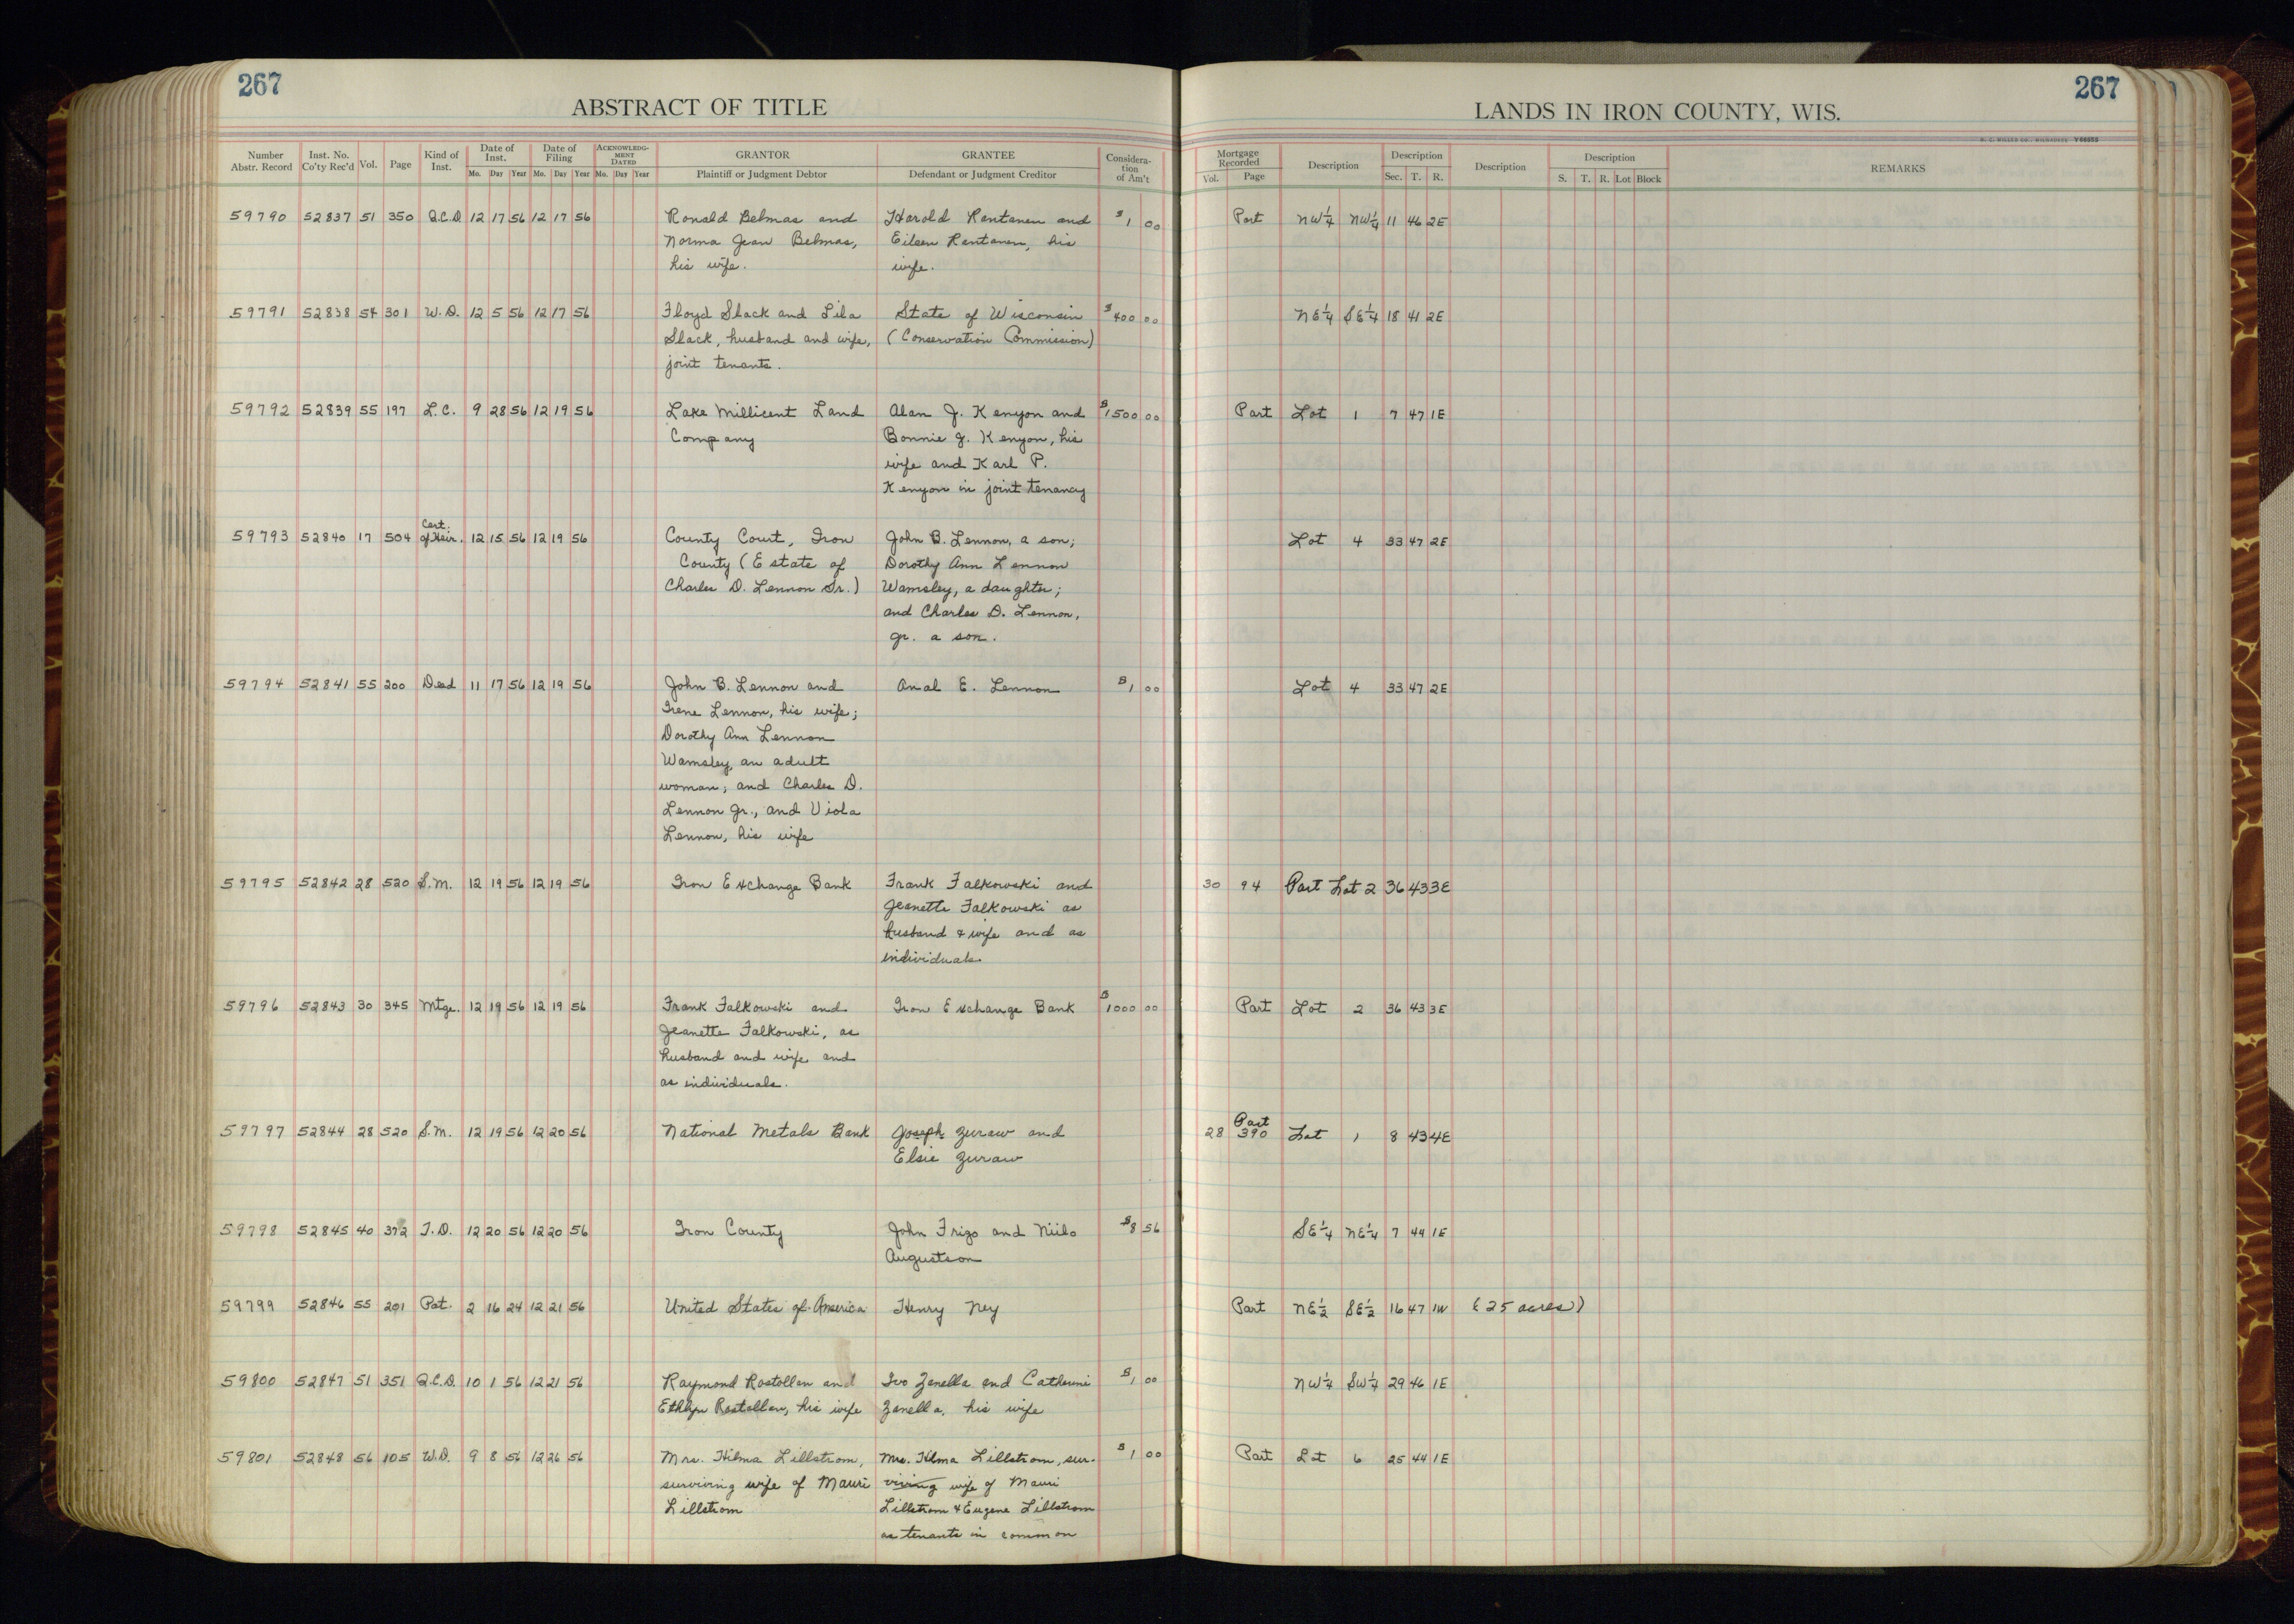 267
ABSTRACT OF TITLE
267
LANDS IN IRON COUNTY, WIS.
Number Abstr. Record | Inst. No. Co'ty Rec'd | Vol. | Page | Kind of Inst. | Date of Inst. Mo. Day Year | Date of Filing Mo. Day Year | ACKNOWLEDG-MENT DATED Mo. Day Year | GRANTOR Plaintiff or Judgment Debtor | GRANTEE Defendant or Judgment Creditor | Considera-tion of Am't | Mortgage Recorded Vol. Page | Description | Description Sec. T. R. | Description | Description S. T. R. Lot Block | REMARKS
59790 52837 51 350 Q.C.D. 12 17 56 12 17 56 Ronald Belmas and Harold Rantanen and $1 00 Part NW¼ NW¼ 11 46 2E
Norma Jean Belmas, Eileen Rantanen, his
his wife. wife.
59791 52838 54 301 W.D. 12 5 56 12 17 56 Floyd Slack and Lila State of Wisconsin $400 00 NE¼ SE¼ 18 41 2E
Slack, husband and wife, (Conservation Commission)
joint tenants.
59792 52839 55 197 L.C. 9 28 56 12 19 56 Lake Millicent Land Alan J. Kenyon and $1500 00 Part Lot 1 7 47 1E
Company Bonnie J. Kenyon, his
wife and Karl P.
Kenyon in joint tenancy
59793 52840 17 504 Cert. of Heir. 12 15 56 12 19 56 County Court, Iron John B. Lennon, a son; Lot 4 33 47 2E
County (Estate of Dorothy Ann Lennon
Charles D. Lennon Sr.) Wamsley, a daughter;
and Charles D. Lennon,
Jr. a son.
59794 52841 55 200 Deed 11 17 56 12 19 56 John B. Lennon and Anal E. Lennon $1 00 Lot 4 33 47 2E
Irene Lennon, his wife;
Dorothy Ann Lennon
Wamsley, an adult
woman; and Charles D.
Lennon Jr., and Viola
Lennon, his wife
59795 52842 28 520 S.M. 12 19 56 12 19 56 Iron Exchange Bank Frank Falkowski and 30 94 Part Lot 2 36 43 3E
Jeanette Falkowski as
husband & wife and as
individuals.
59796 52843 30 345 Mtge. 12 19 56 12 19 56 Frank Falkowski and Iron Exchange Bank $1000 00 Part Lot 2 36 43 3E
Jeanette Falkowski, as
husband and wife and
as individuals.
59797 52844 28 520 S.M. 12 19 56 12 20 56 National Metals Bank Joseph Zuraw and 28 Part 390 Lot 1 8 43 4E
Elsie Zuraw
59798 52845 40 372 T.D. 12 20 56 12 20 56 Iron County John Frigo and Niilo $8 56 SE¼ NE¼ 7 44 1E
Augustson
59799 52846 55 201 Pat. 2 16 24 12 21 56 United States of America Henry Ney Part NE½ SE½ 16 47 1W (25 acres)
59800 52847 51 351 Q.C.D. 10 1 56 12 21 56 Raymond Rostollan and Ivo Zanella and Catherine $1 00 NW¼ SW¼ 29 46 1E
Ethlyn Rostollan, his wife Zanella, his wife
59801 52848 56 105 W.D. 9 8 56 12 26 56 Mrs. Hilma Lillstrom, Mrs. Hilma Lillstrom, sur- $1 00 Part Lot 6 25 44 1E
surviving wife of Mauri viving wife of Mauri
Lillstrom Lillstrom & Eugene Lillstrom
as tenants in common